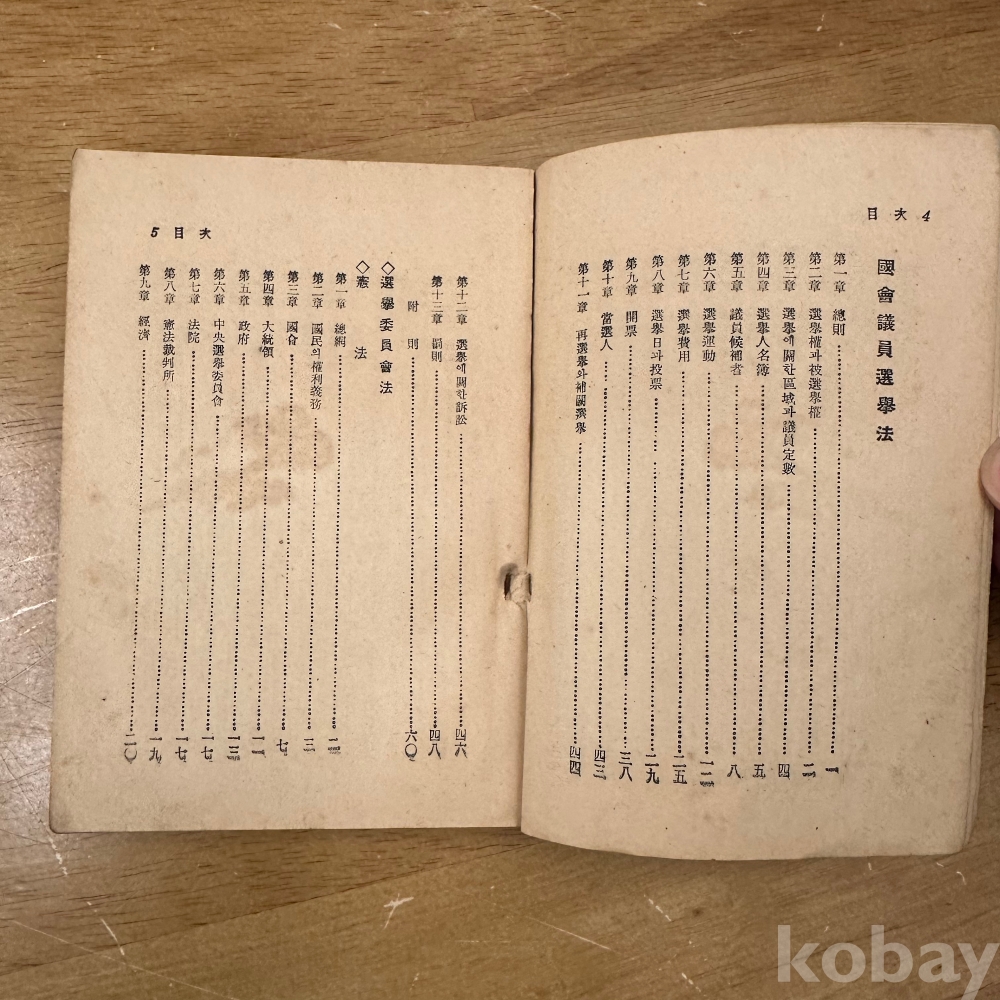 目次 4
國會議員選擧法
第一章 總則 一
第二章 選擧權과被選擧權 二
第三章 選擧에關한區域과議員定數 四
第四章 選擧人名簿 五
第五章 議員候補者 八
第六章 選擧運動 一二
第七章 選擧費用 二五
第八章 選擧日과投票 二九
第九章 開票 三八
第十章 當選人 四三
第十一章 再選擧와補闕選擧 四四
5 目次
第十二章 選擧에關한訴訟 四六
第十三章 罰則 四八
附則 六〇
◇選擧委員會法
◇憲法
第一章 總綱 一
第二章 國民의權利義務 三
第三章 國會 七
第四章 大統領 一一
第五章 政府 一三
第六章 中央選擧委員會 一七
第七章 法院 一七
第八章 憲法裁判所 一九
第九章 經濟 二〇
kobay